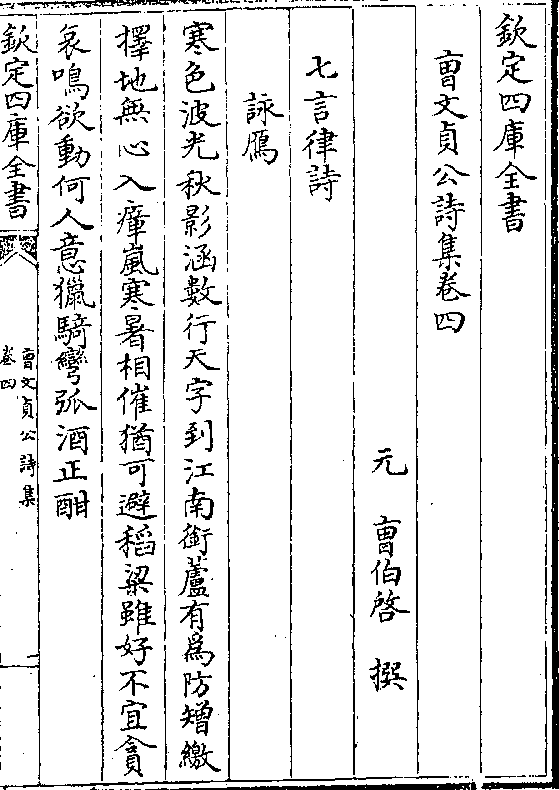 欽定四庫全書
曺文貞公詩集卷四
元　曺伯啓　撰
七言律詩
詠鴈
寒色波光秋影涵數行天字到江南銜蘆有爲防矰繳
擇地無心入瘴嵐寒暑相催猶可避稻粱雖好不宜貪
哀鳴欲動何人意獵騎彎弧酒正酣
欽定四庫全書
曺文貞公詩集
卷四
一